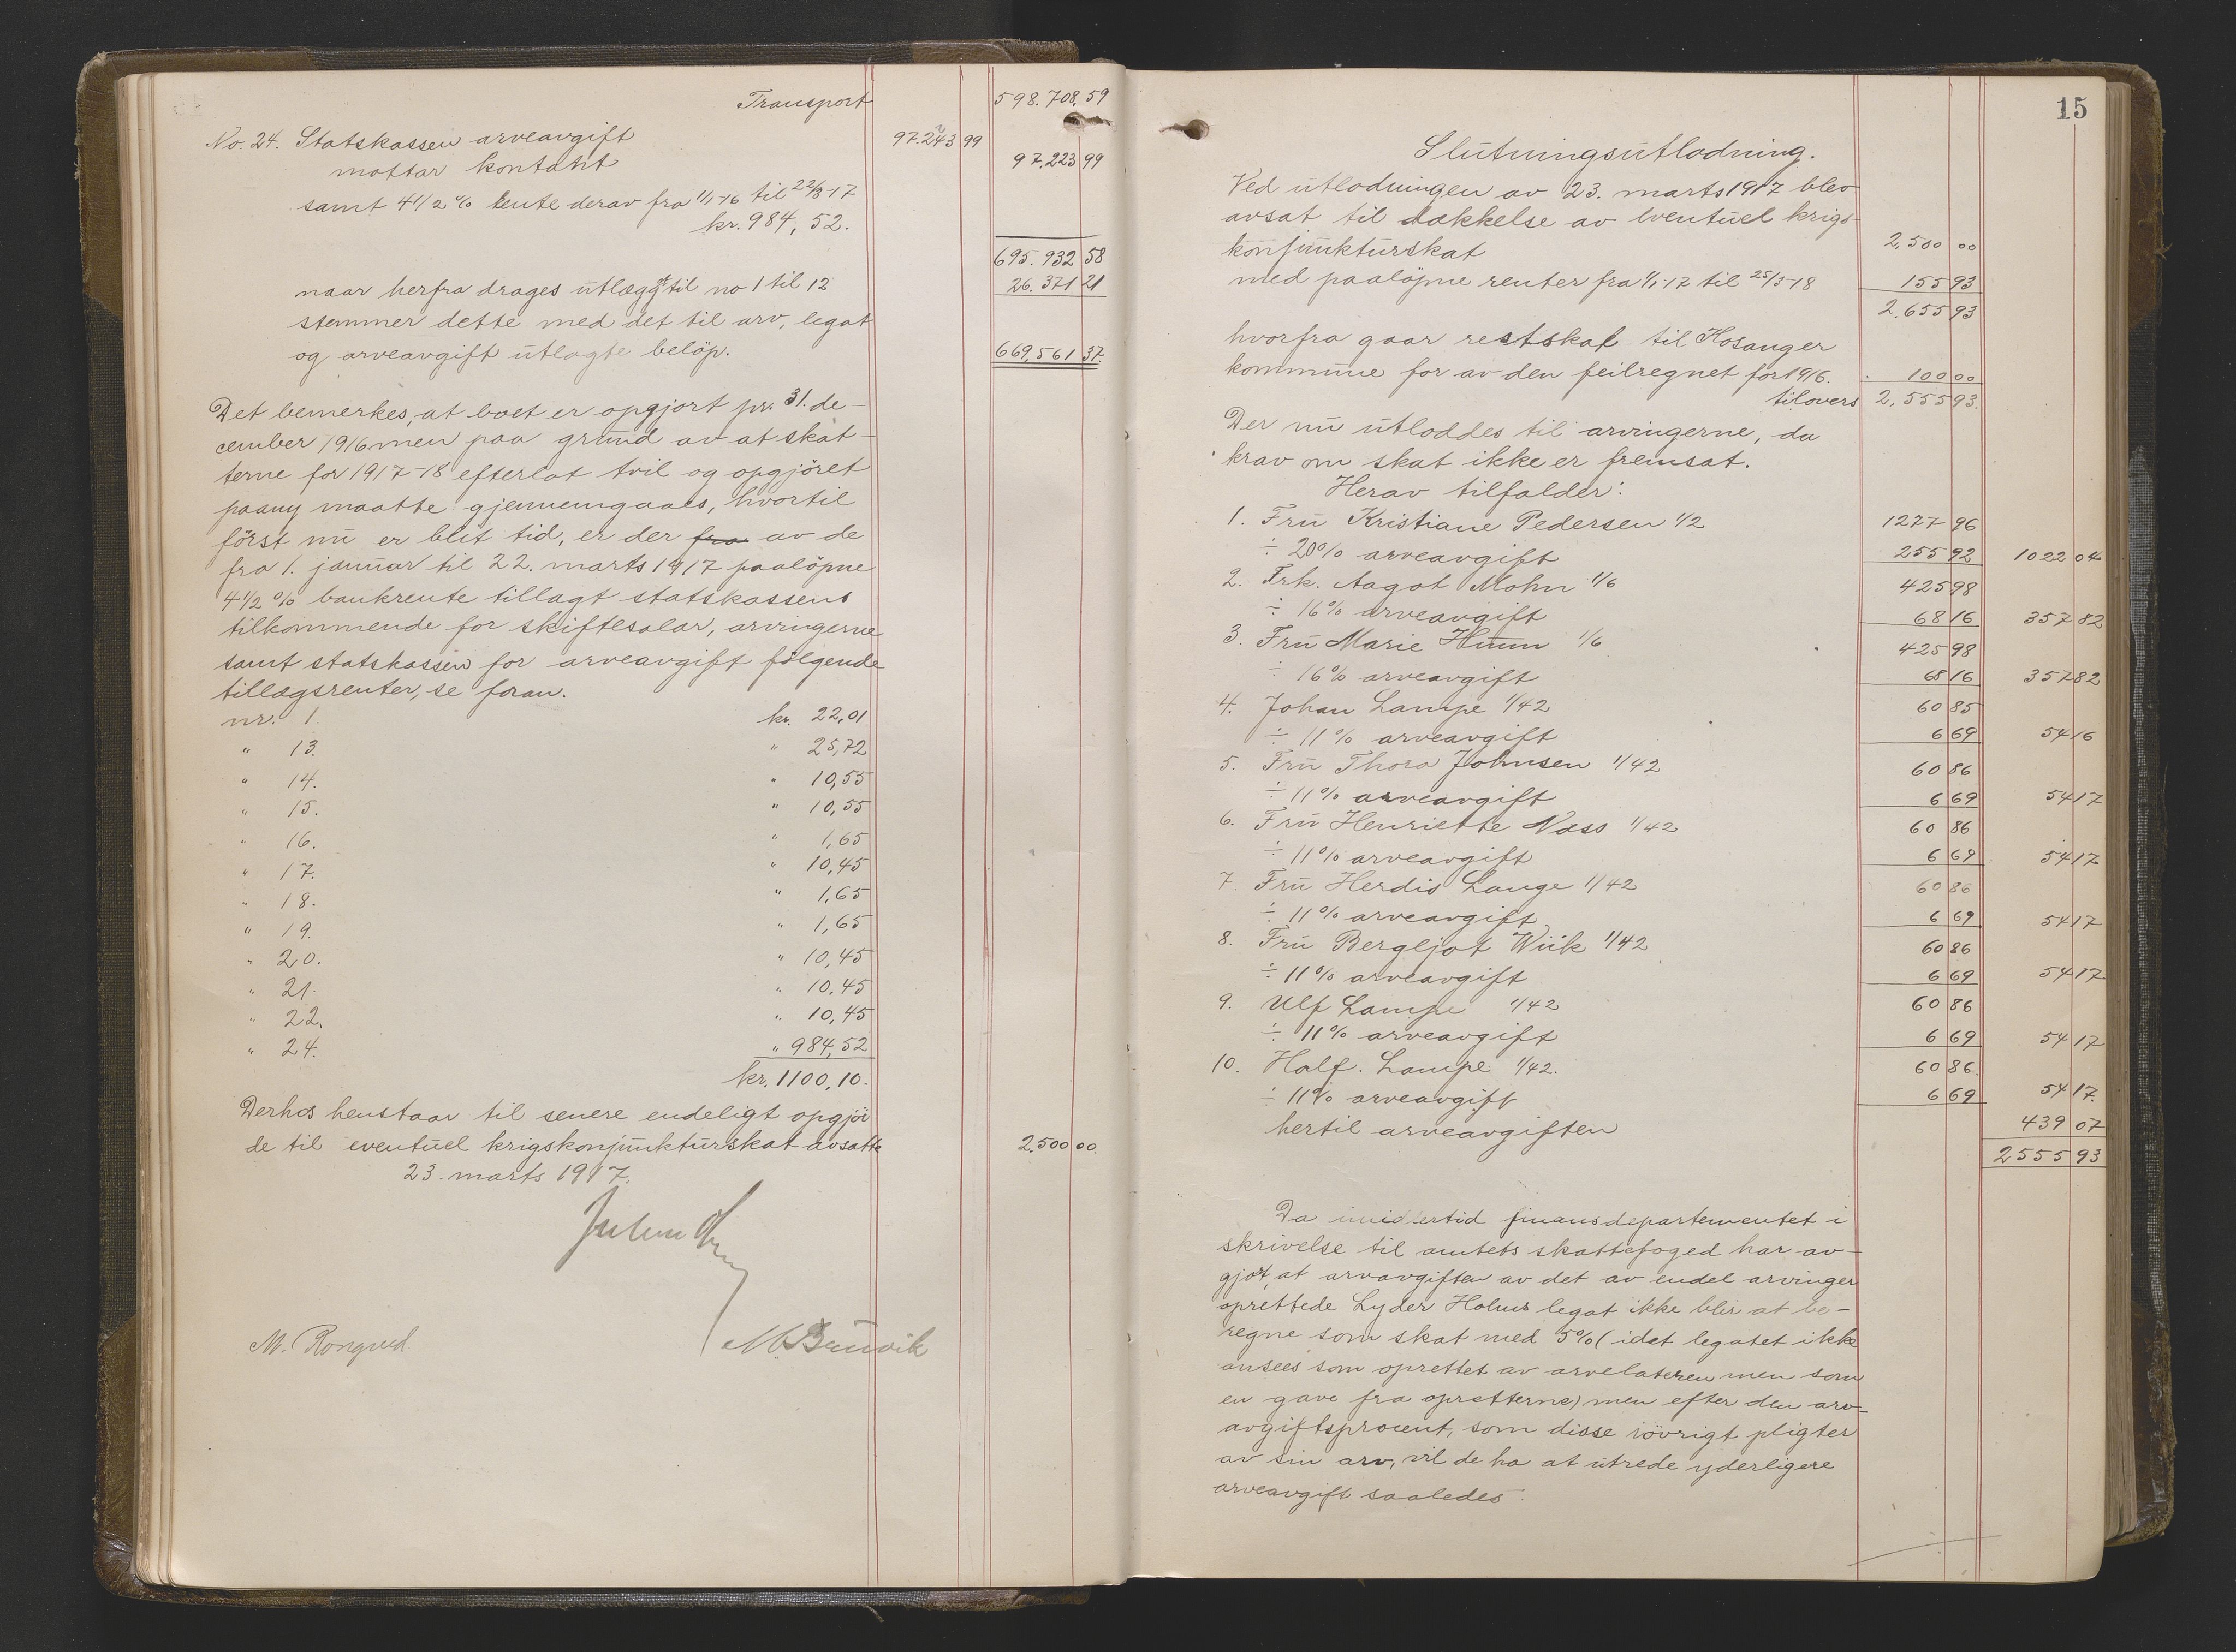 Transport 598.708,59
No. 24. Statskassen arveavgift 97.243 99
mottar kontant 97.223 99
samt 4 1/2 % rente derav fra 1/1-16 til 22/3-17
kr. 984, 52.
695.932 58
naar herfra drages utlægget til no 1 til 12 26.371 21
stemmer dette med det til arv, legat
og arveavgift utlagte beløp. 669,561 37.
Det bemerkes, at boet er opgjort pr. 31. de-
cember 1916 men paa grund av at skat-
terne for 1917-18 efterlot tvil og opgjöret
paany maatte gjennemgaaes, hvortil
först nu er blit tid, er der fra av de
fra 1. januar til 22. marts 1917 paalöpne
4 1/2 % bankrente tillagt statskassens
tilkommende for skiftesalær, arvingerne
samt statskassen for arveavgift fölgende
tillægsrenter, se foran.
nr. 1. kr. 22,01
" 13. " 25,72
" 14. " 10,55
" 15. " 10,55
" 16. " 1,65
" 17. " 10,45
" 18. " 1,65
" 19. " 1,65
" 20. " 10,45
" 21. " 10,45
" 22. " 10,45
" 24. " 984,52
kr. 1100,10.
Derhos henstaar til senere endeligt opgjör
de til eventuel krigskonjunkturskat avsatte 2.500 00.
23. marts 1917.
M. Rongved
15
Slutningsutlodning.
Ved utlodningen av 23. marts 1917 blev
avsat til dækkelse av eventuel krigs-
konjunkturskat 2,500 00
med paalöpne renter fra 1/1-17 til 25/5-18 155 93
2.655 93
hvorfra gaar restskat til Hosanger
kommune for av den feilregnet for 1916. 100 00
tilovers 2,555 93.
Der nu utloddes til arvingerne, da
krav om skat ikke er fremsat.
Herav tilfalder:
1. Fru Kristiane Pedersen 1/2 1277 96
÷ 20% arveavgift 255 92 1022 04
2. Frk. Aagot Mohn 1/6 425 98
÷ 16% arveavgift 68 16 357 82
3. Fru Marie Humm 1/6 425 98
÷ 16% arveavgift 68 16 357 82
4. Johan Lampe 1/42 60 85
÷ 11% arveavgift 6 69 54 16
5. Fru Thora Johnsen 1/42 60 86
÷ 11% arveavgift 6 69 54 17
6. Fru Henriette Næss 1/42 60 86
÷ 11% arveavgift 6 69 54 17
7. Fru Herdis Lange 1/42 60 86
÷ 11% arveavgift 6 69 54 17
8. Fru Bergljot Wiik 1/42 60 86
÷ 11% arveavgift 6 69 54 17
9. Ulf Lampe 1/42 60 86
÷ 11% arveavgift 6 69 54 17
10. Half. Lampe 1/42. 60 86.
÷ 11% arveavgift 6 69 54 17.
hertil arveavgiften 439 07
2555 93
Da imidlertid finansdepartementet i
skrivelse til amtets skattefoged har av-
gjort, at arvavgiften av det av endel arvinger
oprettede Lyder Holms legat ikke blir at be-
regne som skat med 5% (idet legatet ikke
ansees som oprettet av arvelateren men som
en gave fra opretterne) men efter den arv-
avgiftsprocent, som disse iövrigt pligter
av sin arv, vil de ha at utrede yderligere
arveavgift saaledes